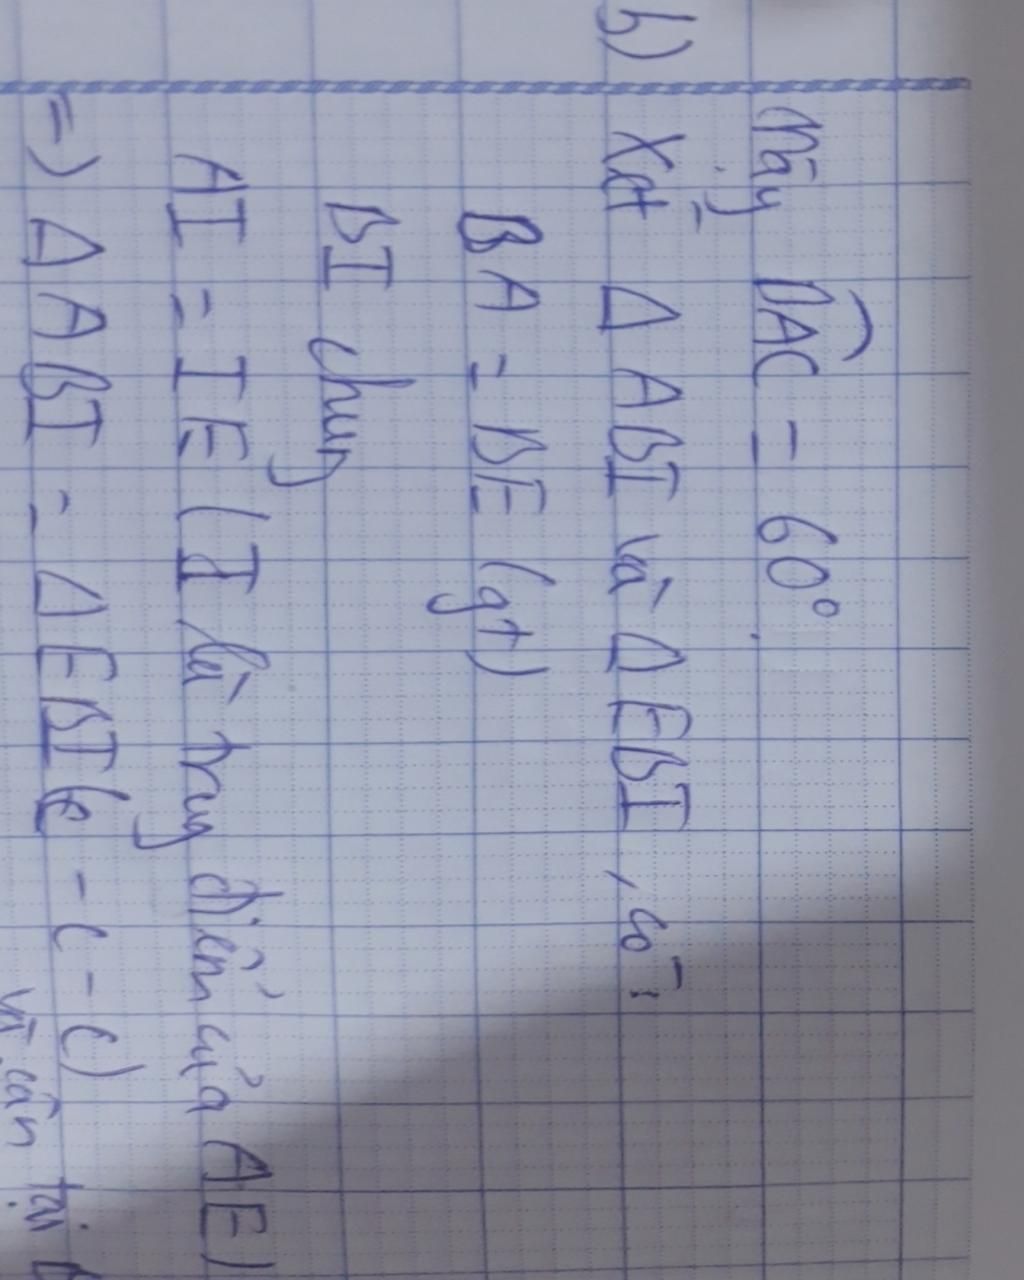 Vậy DAC = 60°
b) Xét Δ ABI và Δ EBI, có:
BA = BE (gt)
BI chung
AI = IE (I là trung điểm của AE)
=> Δ ABI = Δ EBI (c - c - c)
và cân tại